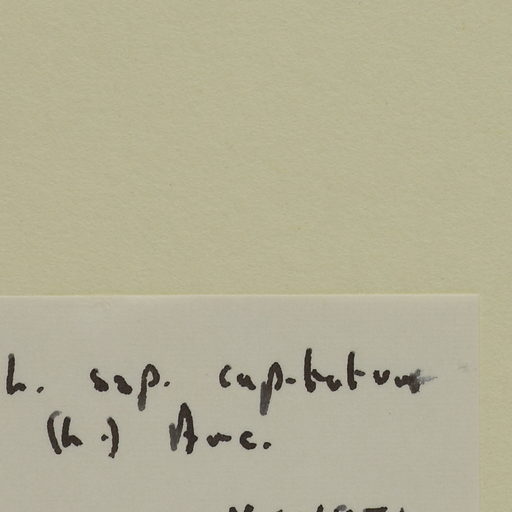 h. ssp. capitatum
(h.) Arc.